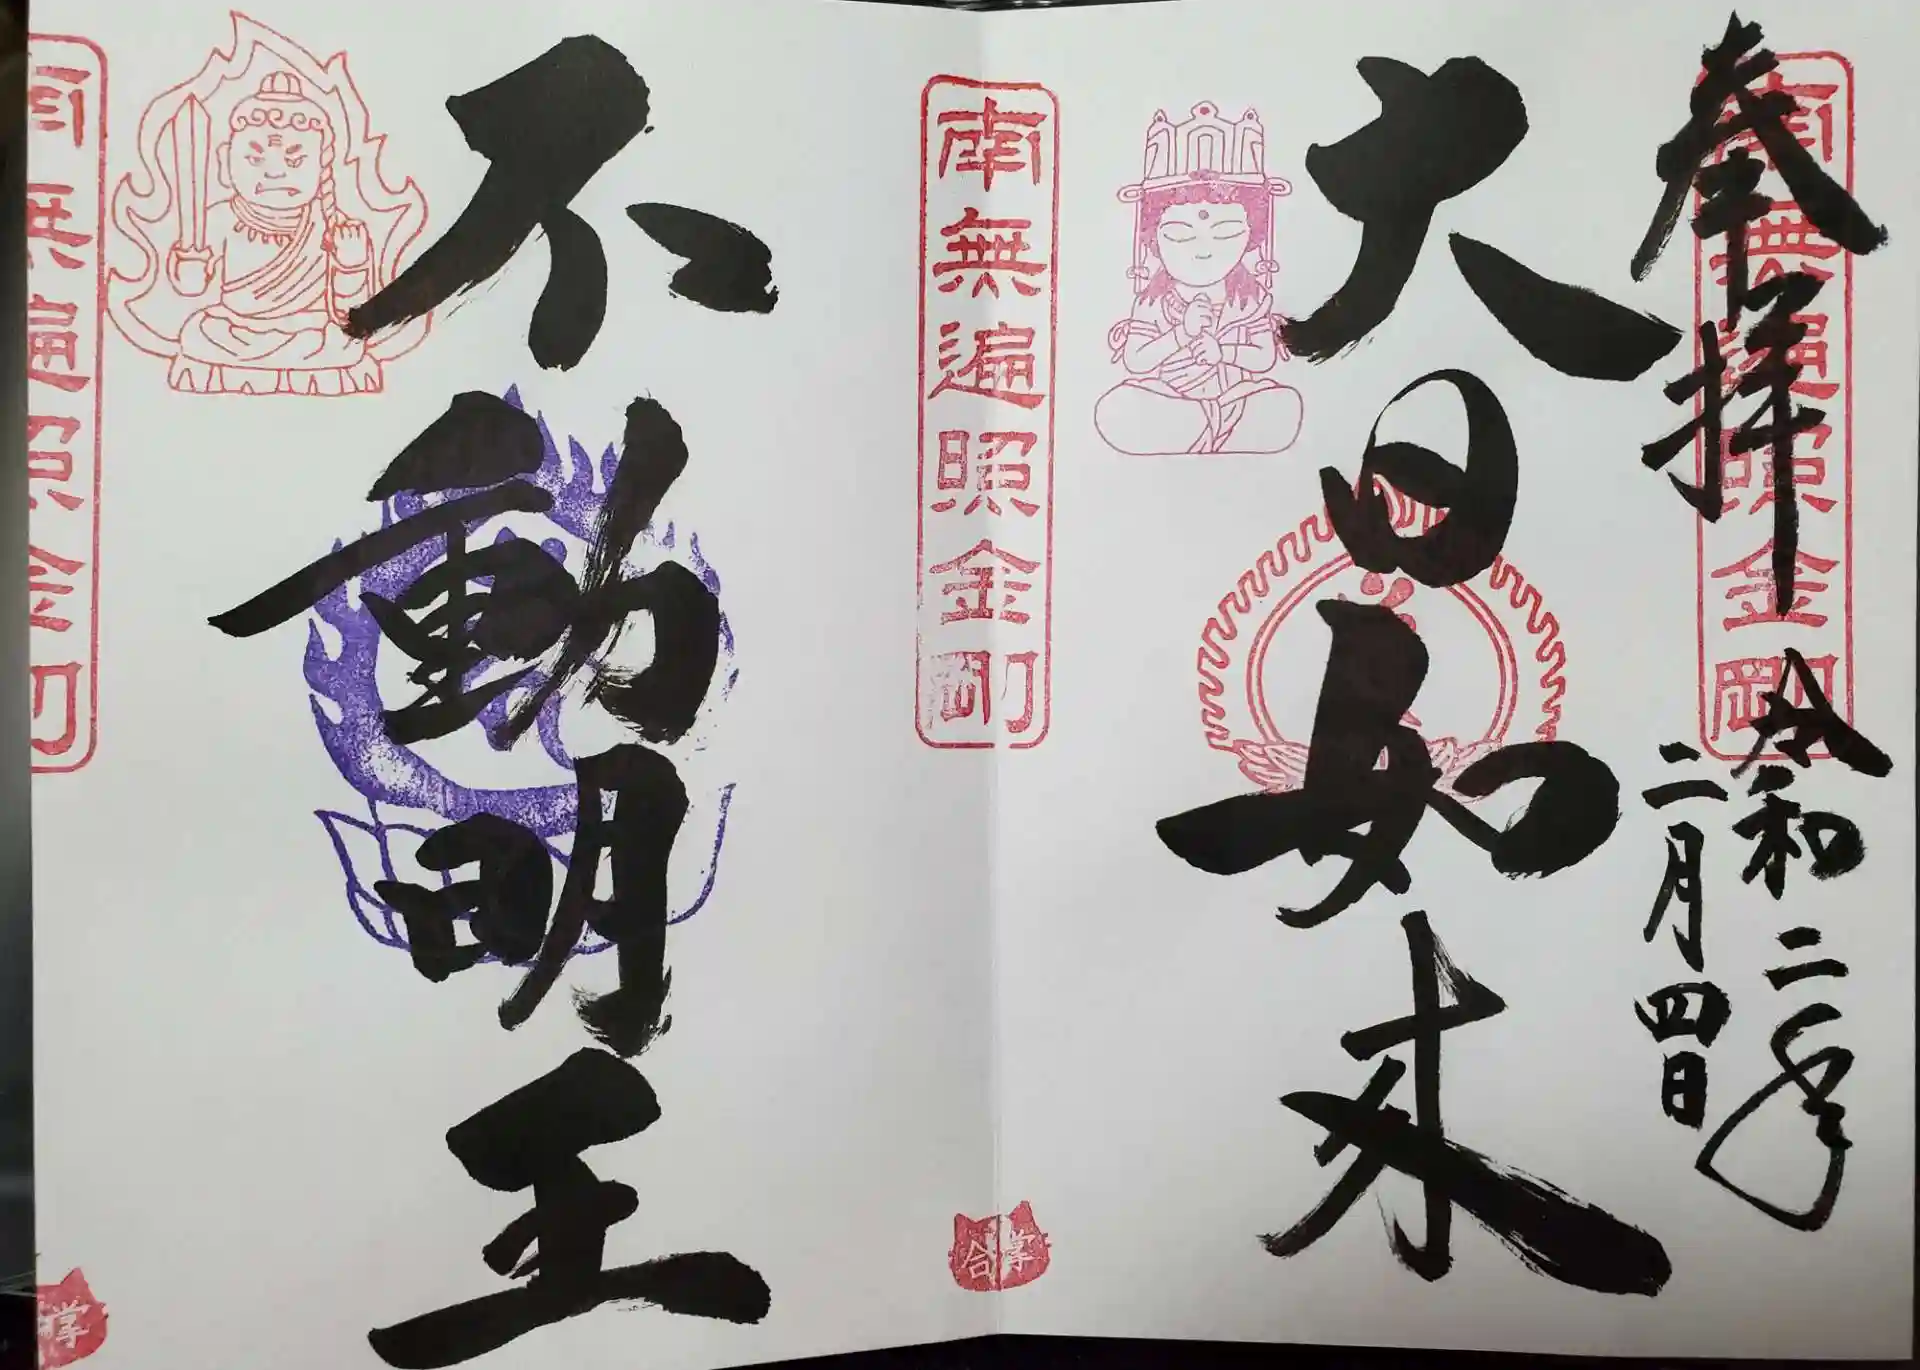 奉拝
南無遍照金剛
令和二年
二月四日
大日如来
南無遍照金剛
合掌
不動明王
南無遍照金剛
合掌